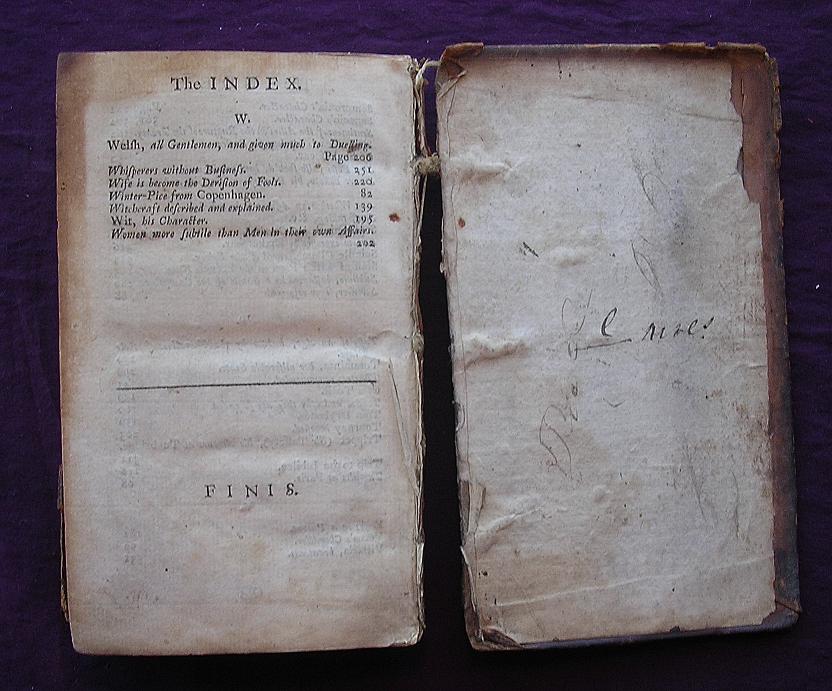 The INDEX.
W.
Welsh, all Gentlemen, and given much to Duelling.
Page 206
Whisperers without Business. 251
Wife is become the Derision of Fools. 220
Winter-Piece from Copenhagen. 82
Witchcraft described and explained. 139
Wit, his Character. 195
Women more subtile than Men in their own Affairs.
202
FINIS.